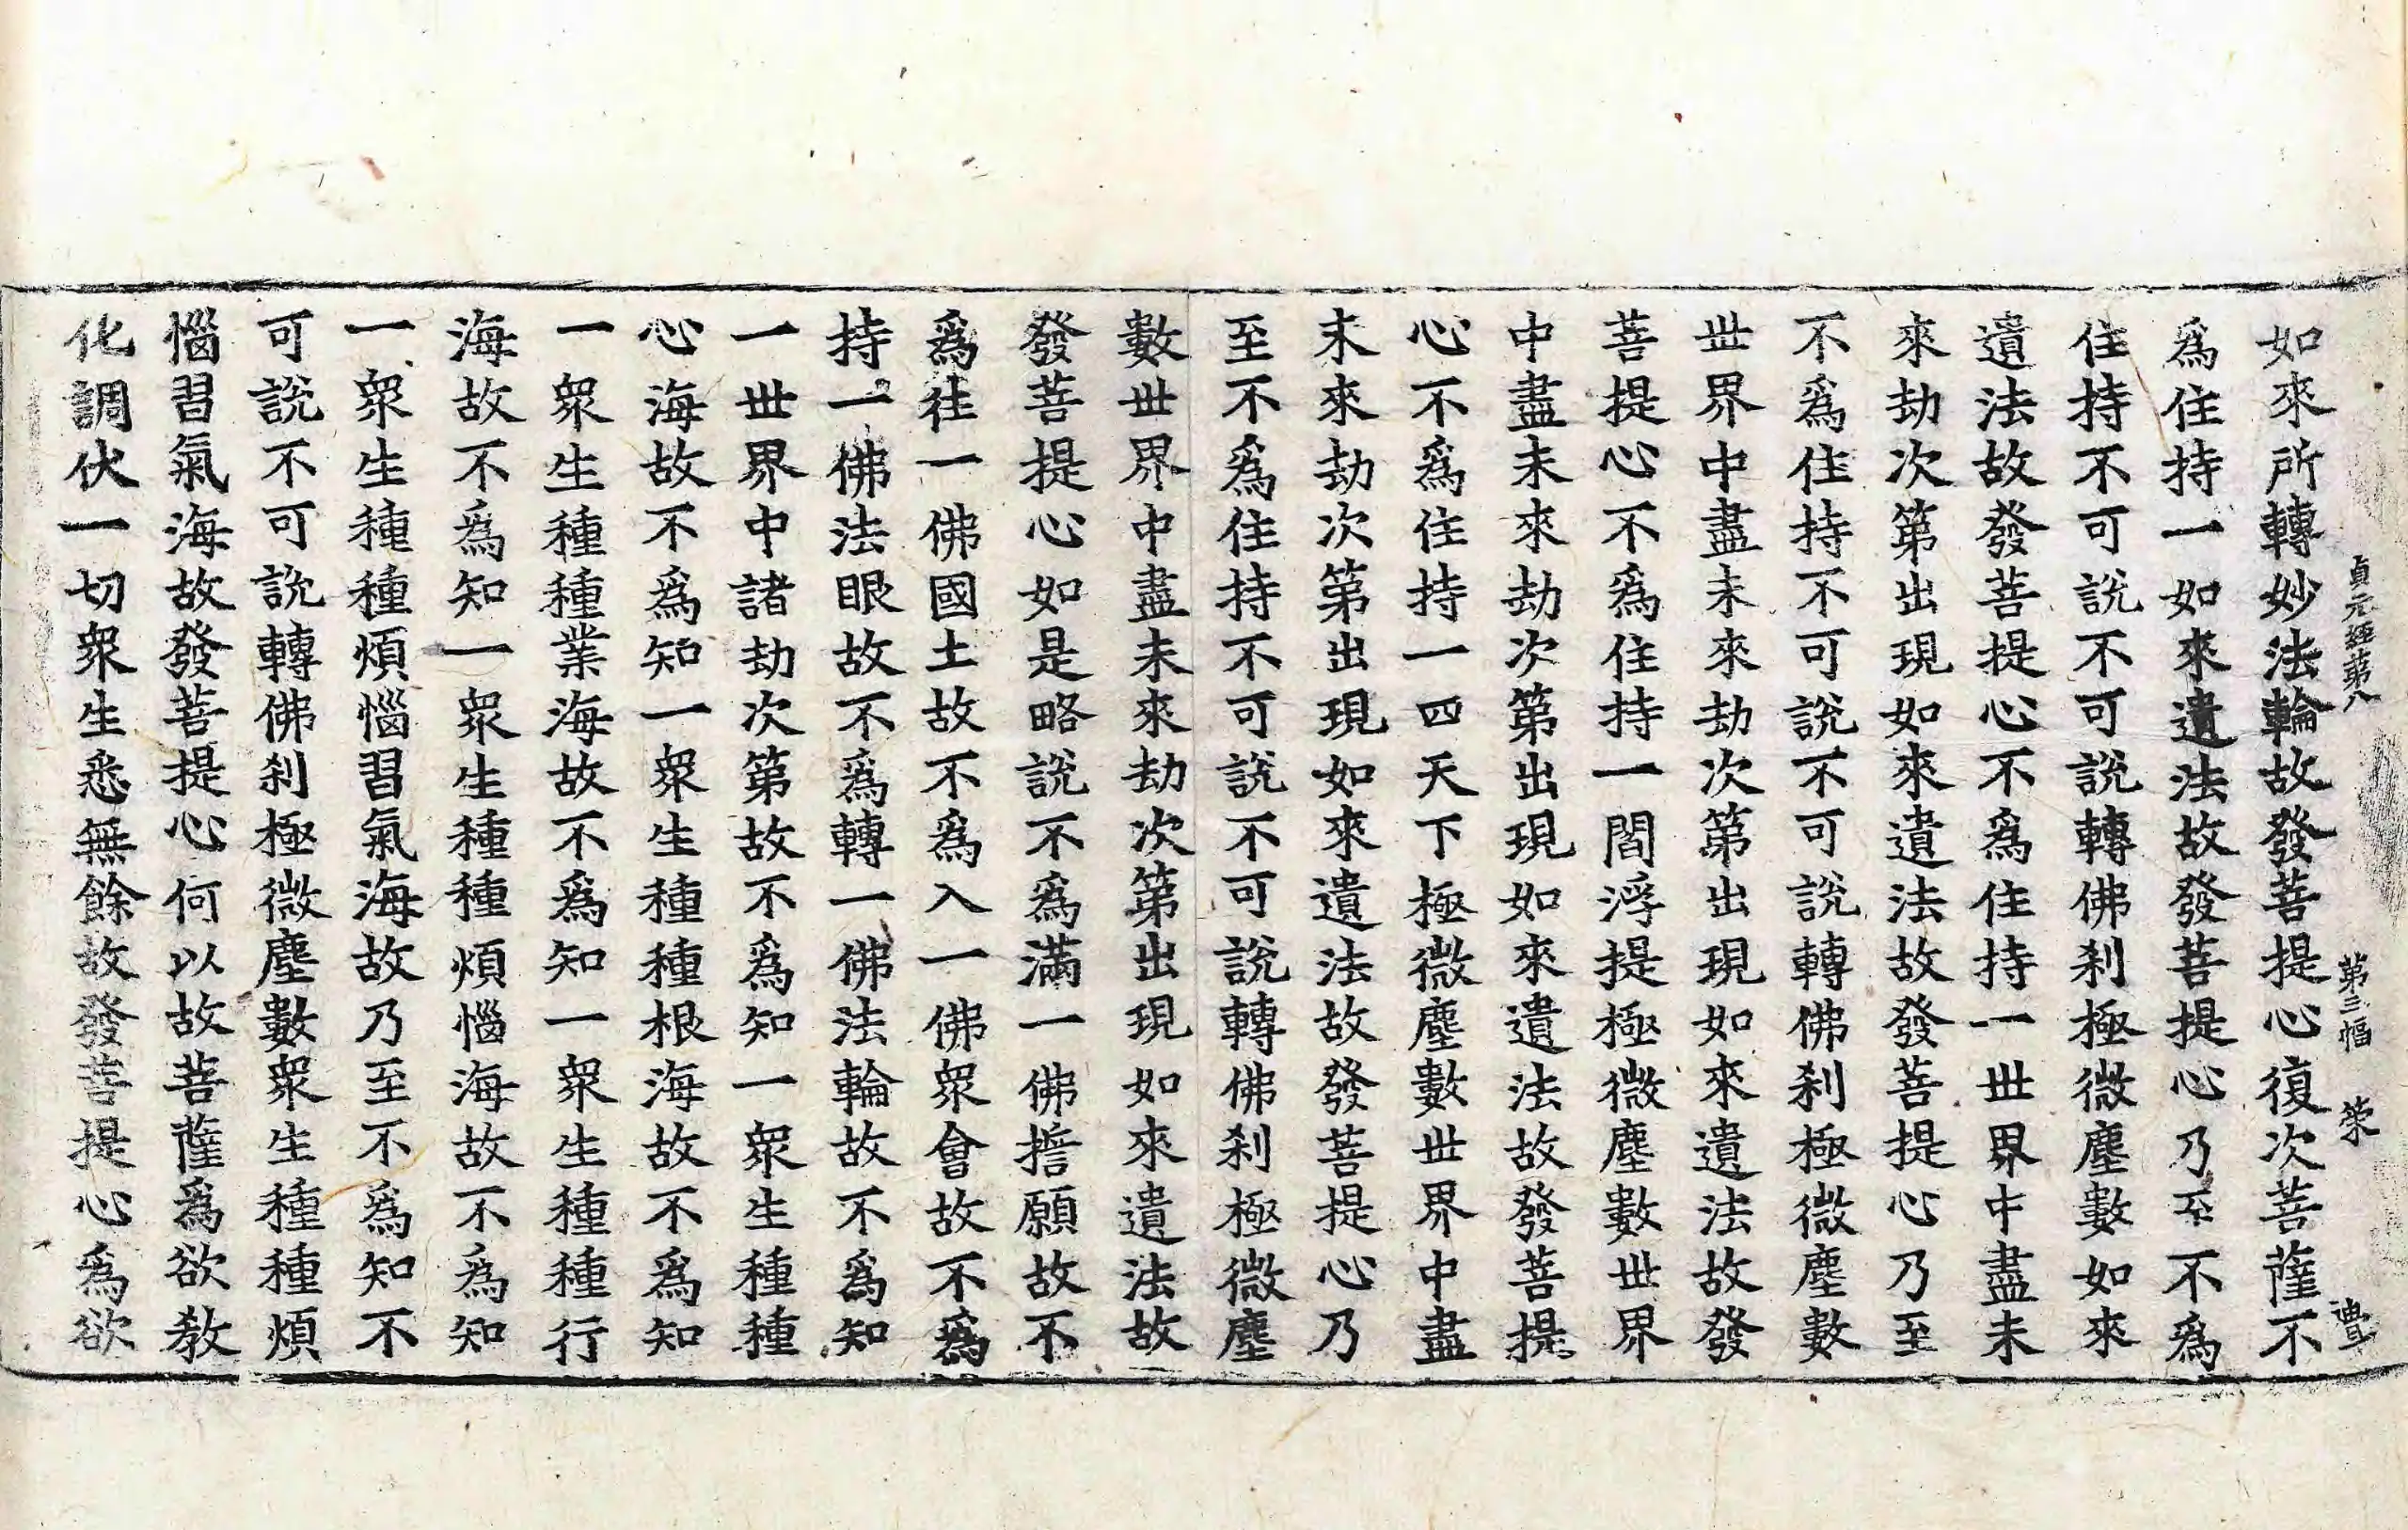 貞元經第八 第三幅 荣 豊
如來所轉妙法輪故發菩提心復次菩薩不
爲住持一如來遺法故發菩提心乃至不爲
住持不可說不可說轉佛刹極微塵數如來
遺法故發菩提心不爲住持一世界中盡未
來劫次第出現如來遺法故發菩提心乃至
不爲住持不可說不可說轉佛刹極微塵數
世界中盡未來劫次第出現如來遺法故發
菩提心不爲住持一閻浮提極微塵數世界
中盡未來劫次第出現如來遺法故發菩提
心不爲住持一四天下極微塵數世界中盡
未來劫次第出現如來遺法故發菩提心乃
至不爲住持不可說不可說轉佛刹極微塵
數世界中盡未來劫次第出現如來遺法故
發菩提心如是略說不爲滿一佛擔願故不
爲往一佛國土故不爲入一佛衆會故不爲
持一佛法眼故不爲轉一佛法輪故不爲知
一世界中諸劫次第故不爲知一衆生種種
心海故不爲知一衆生種種根海故不爲知
一衆生種種業海故不爲知一衆生種種行
海故不爲知一衆生種種煩惱海故不爲知
一衆生種種煩惱習氣海故乃至不爲知不
可說不可說轉佛刹極微塵數衆生種種煩
惱習氣海故發菩提心何以故菩薩爲欲教
化調伏一切衆生悉無餘故發菩提心爲欲